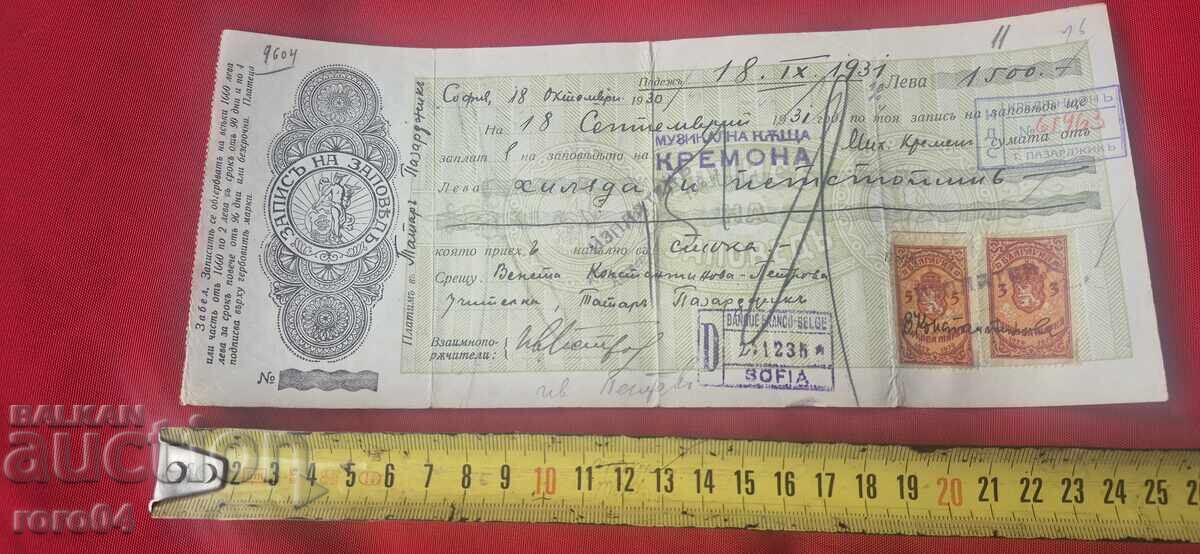 9604
11
16
Забел. Записитѣ се обгербватъ на всѣки 1660 лева
или часть отъ 1660 по 2 лева за срокъ отъ 90 дни и по 4
лева за срокъ повече отъ 90 дни или безсрочни. Платеца
подписва върху гербовитѣ марки.
ЗАПИСЪ НА ЗАПОВѢДЬ
№
Платимъ въ Татаръ Пазарджикъ
Падежъ 18. IX. 1931 Лева 1500.-
София, 18 Октомврий 1930
На 18 Септемврий 1931 год. по тоя запись на заповѣдь ще
заплатѭ на заповѣдьта на МУЗИКАЛНА КѪЩА КРЕМОНА Мих. Кременъ сумата отъ
№ 61963
Г. ПАЗАРДЖИКЪ
Лева хиляда и петстотинъ
която приехъ напълно въ стока
Срещу Венета Константинова-Петрова
учителка, Татаръ Пазарджикъ
Взаимнопо-
рѫчители:
Ив. Петров
D
BANQUE FRANCO-BELGE
SOFIA
БЪЛГАРИЯ
5 5
БЪЛГАРИЯ
3 3
BALKAN
auction
roro04
2 3 4 5 6 7 8 9 10 11 12 13 14 15 16 17 18 19 20 21 22 23 24 25 26